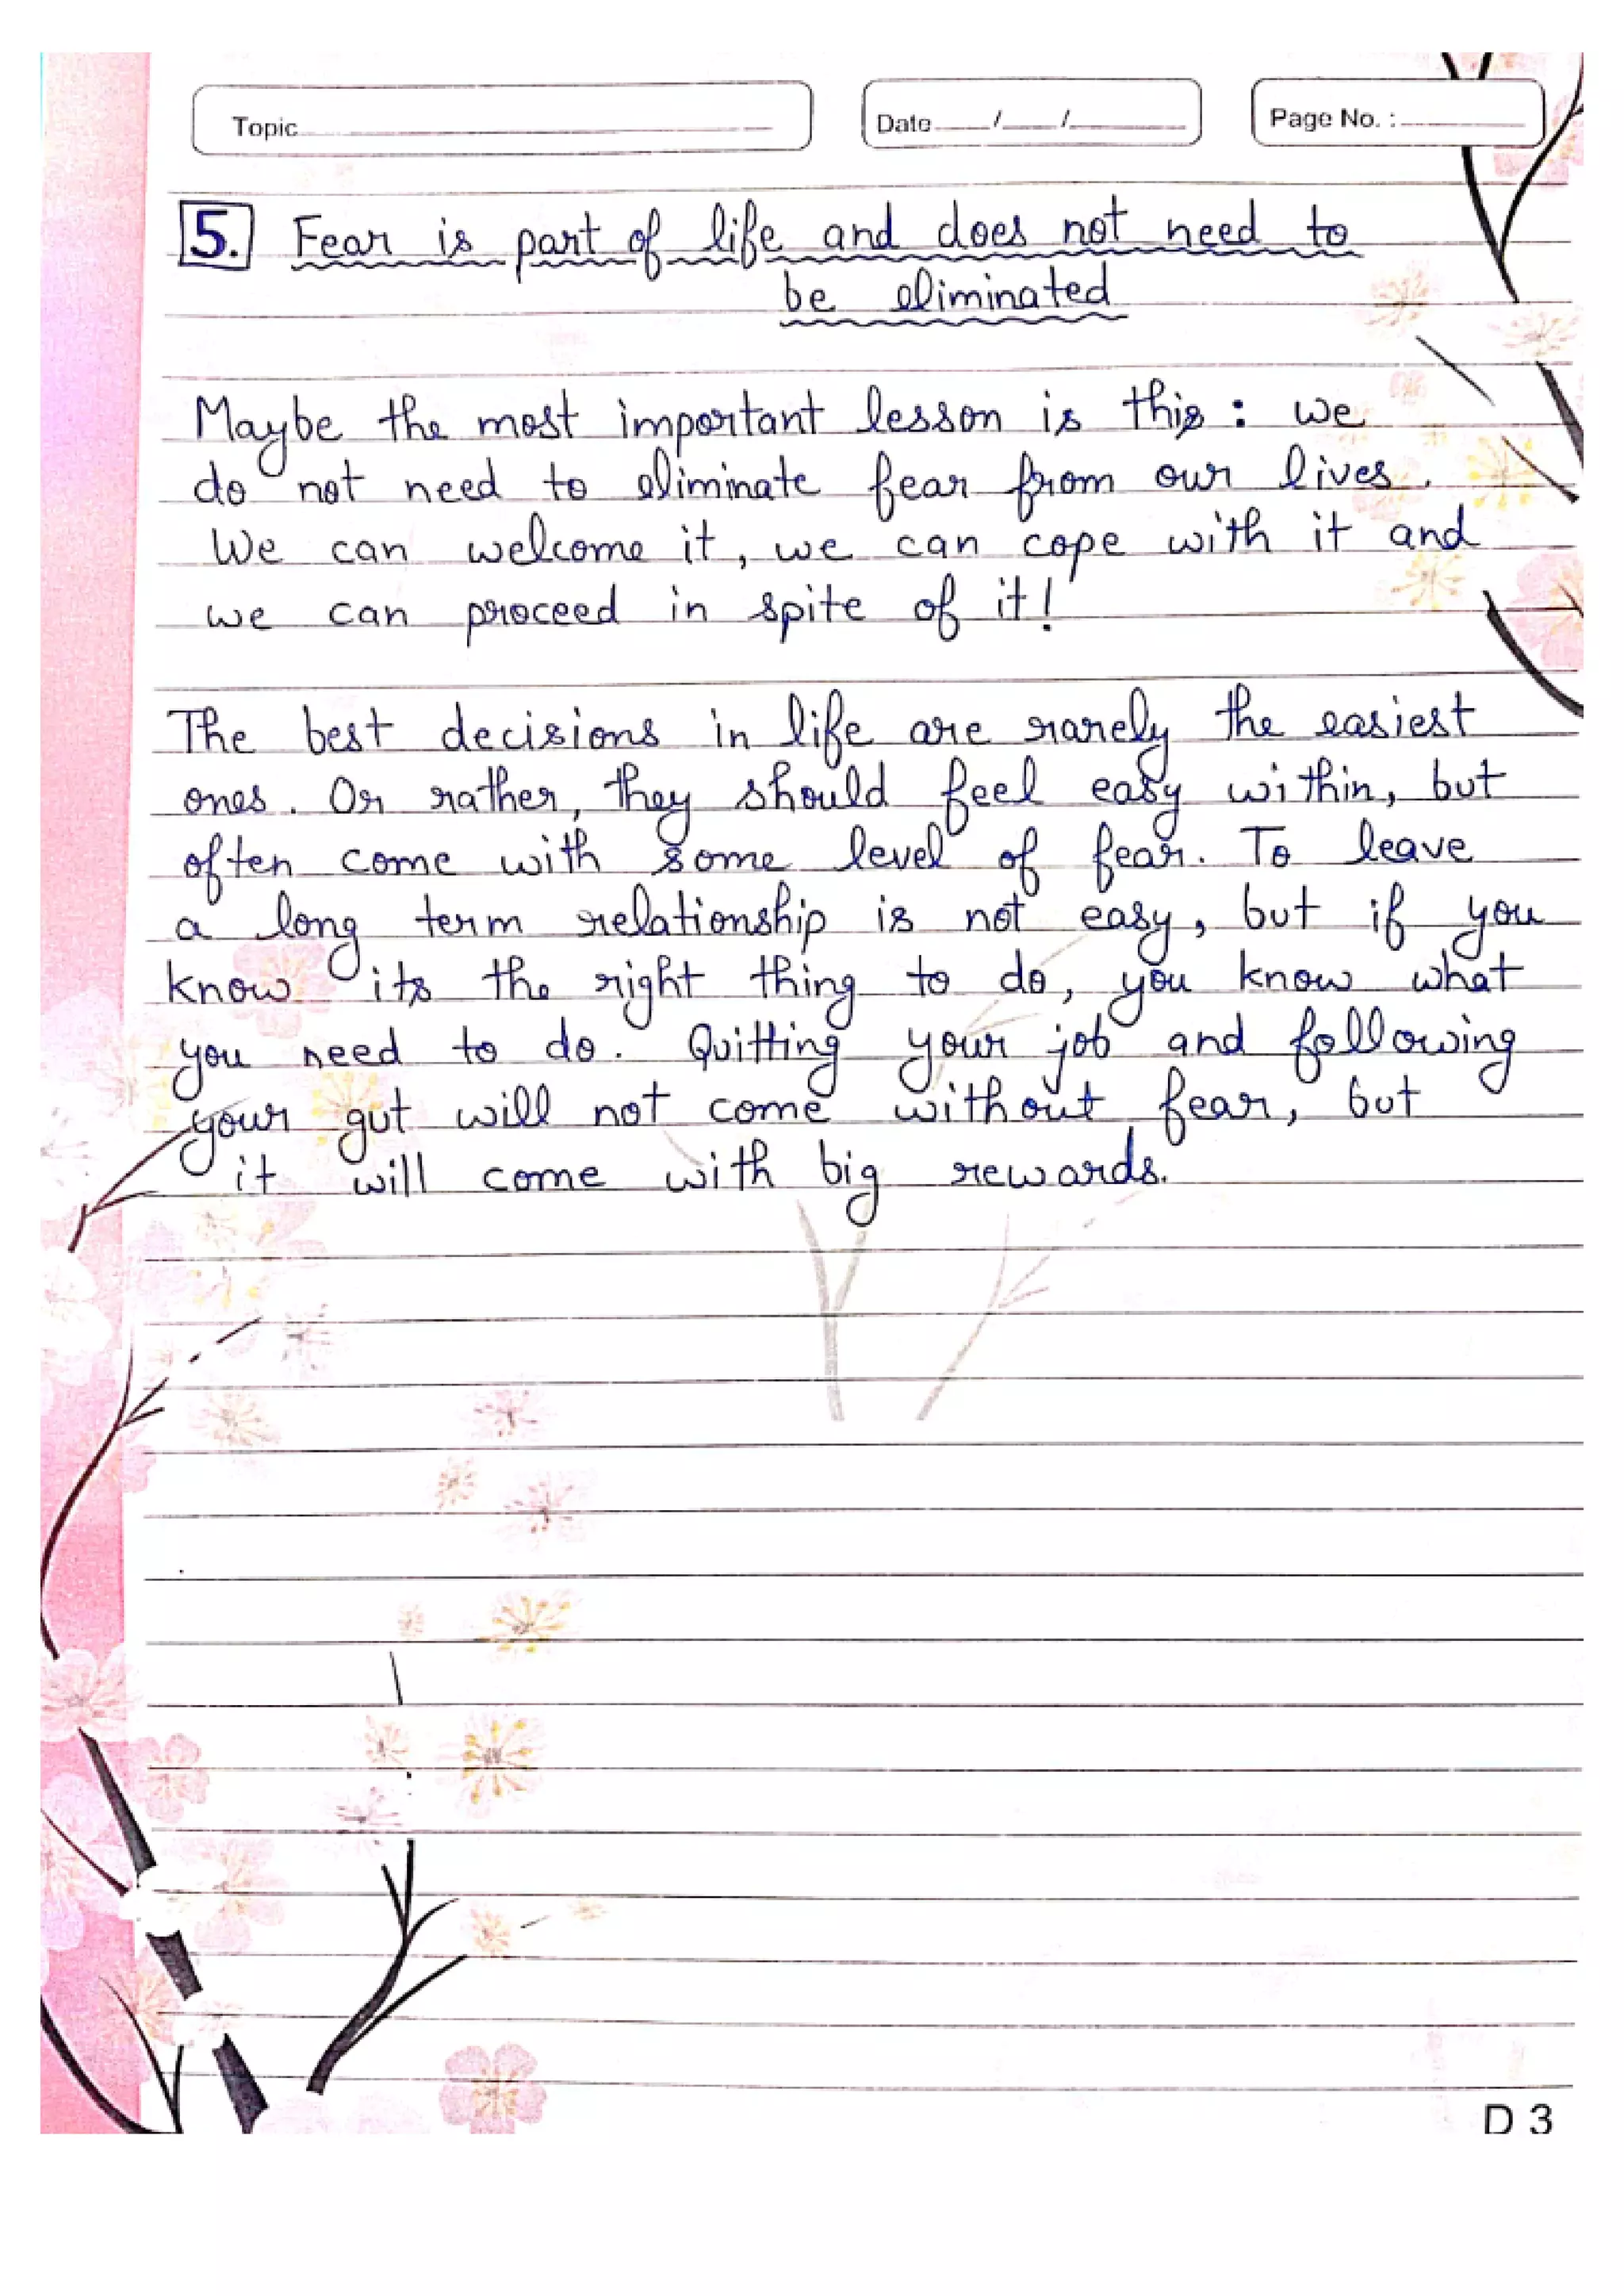 Topic
Date / /
Page No. :
5. Fear is part of life and does not need to
be eliminated
Maybe the most important lesson is this : we
do not need to eliminate fear from our lives.
We can welcome it, we can cope with it and
we can proceed in spite of it!
The best decisions in life are rarely the easiest
ones. Or rather, they should feel easy within, but
often come with some level of fear. To leave
a long term relationship is not easy, but if you
know its the right thing to do, you know what
you need to do. Quitting your job and following
your gut will not come without fear, but
it will come with big rewards.
D 3